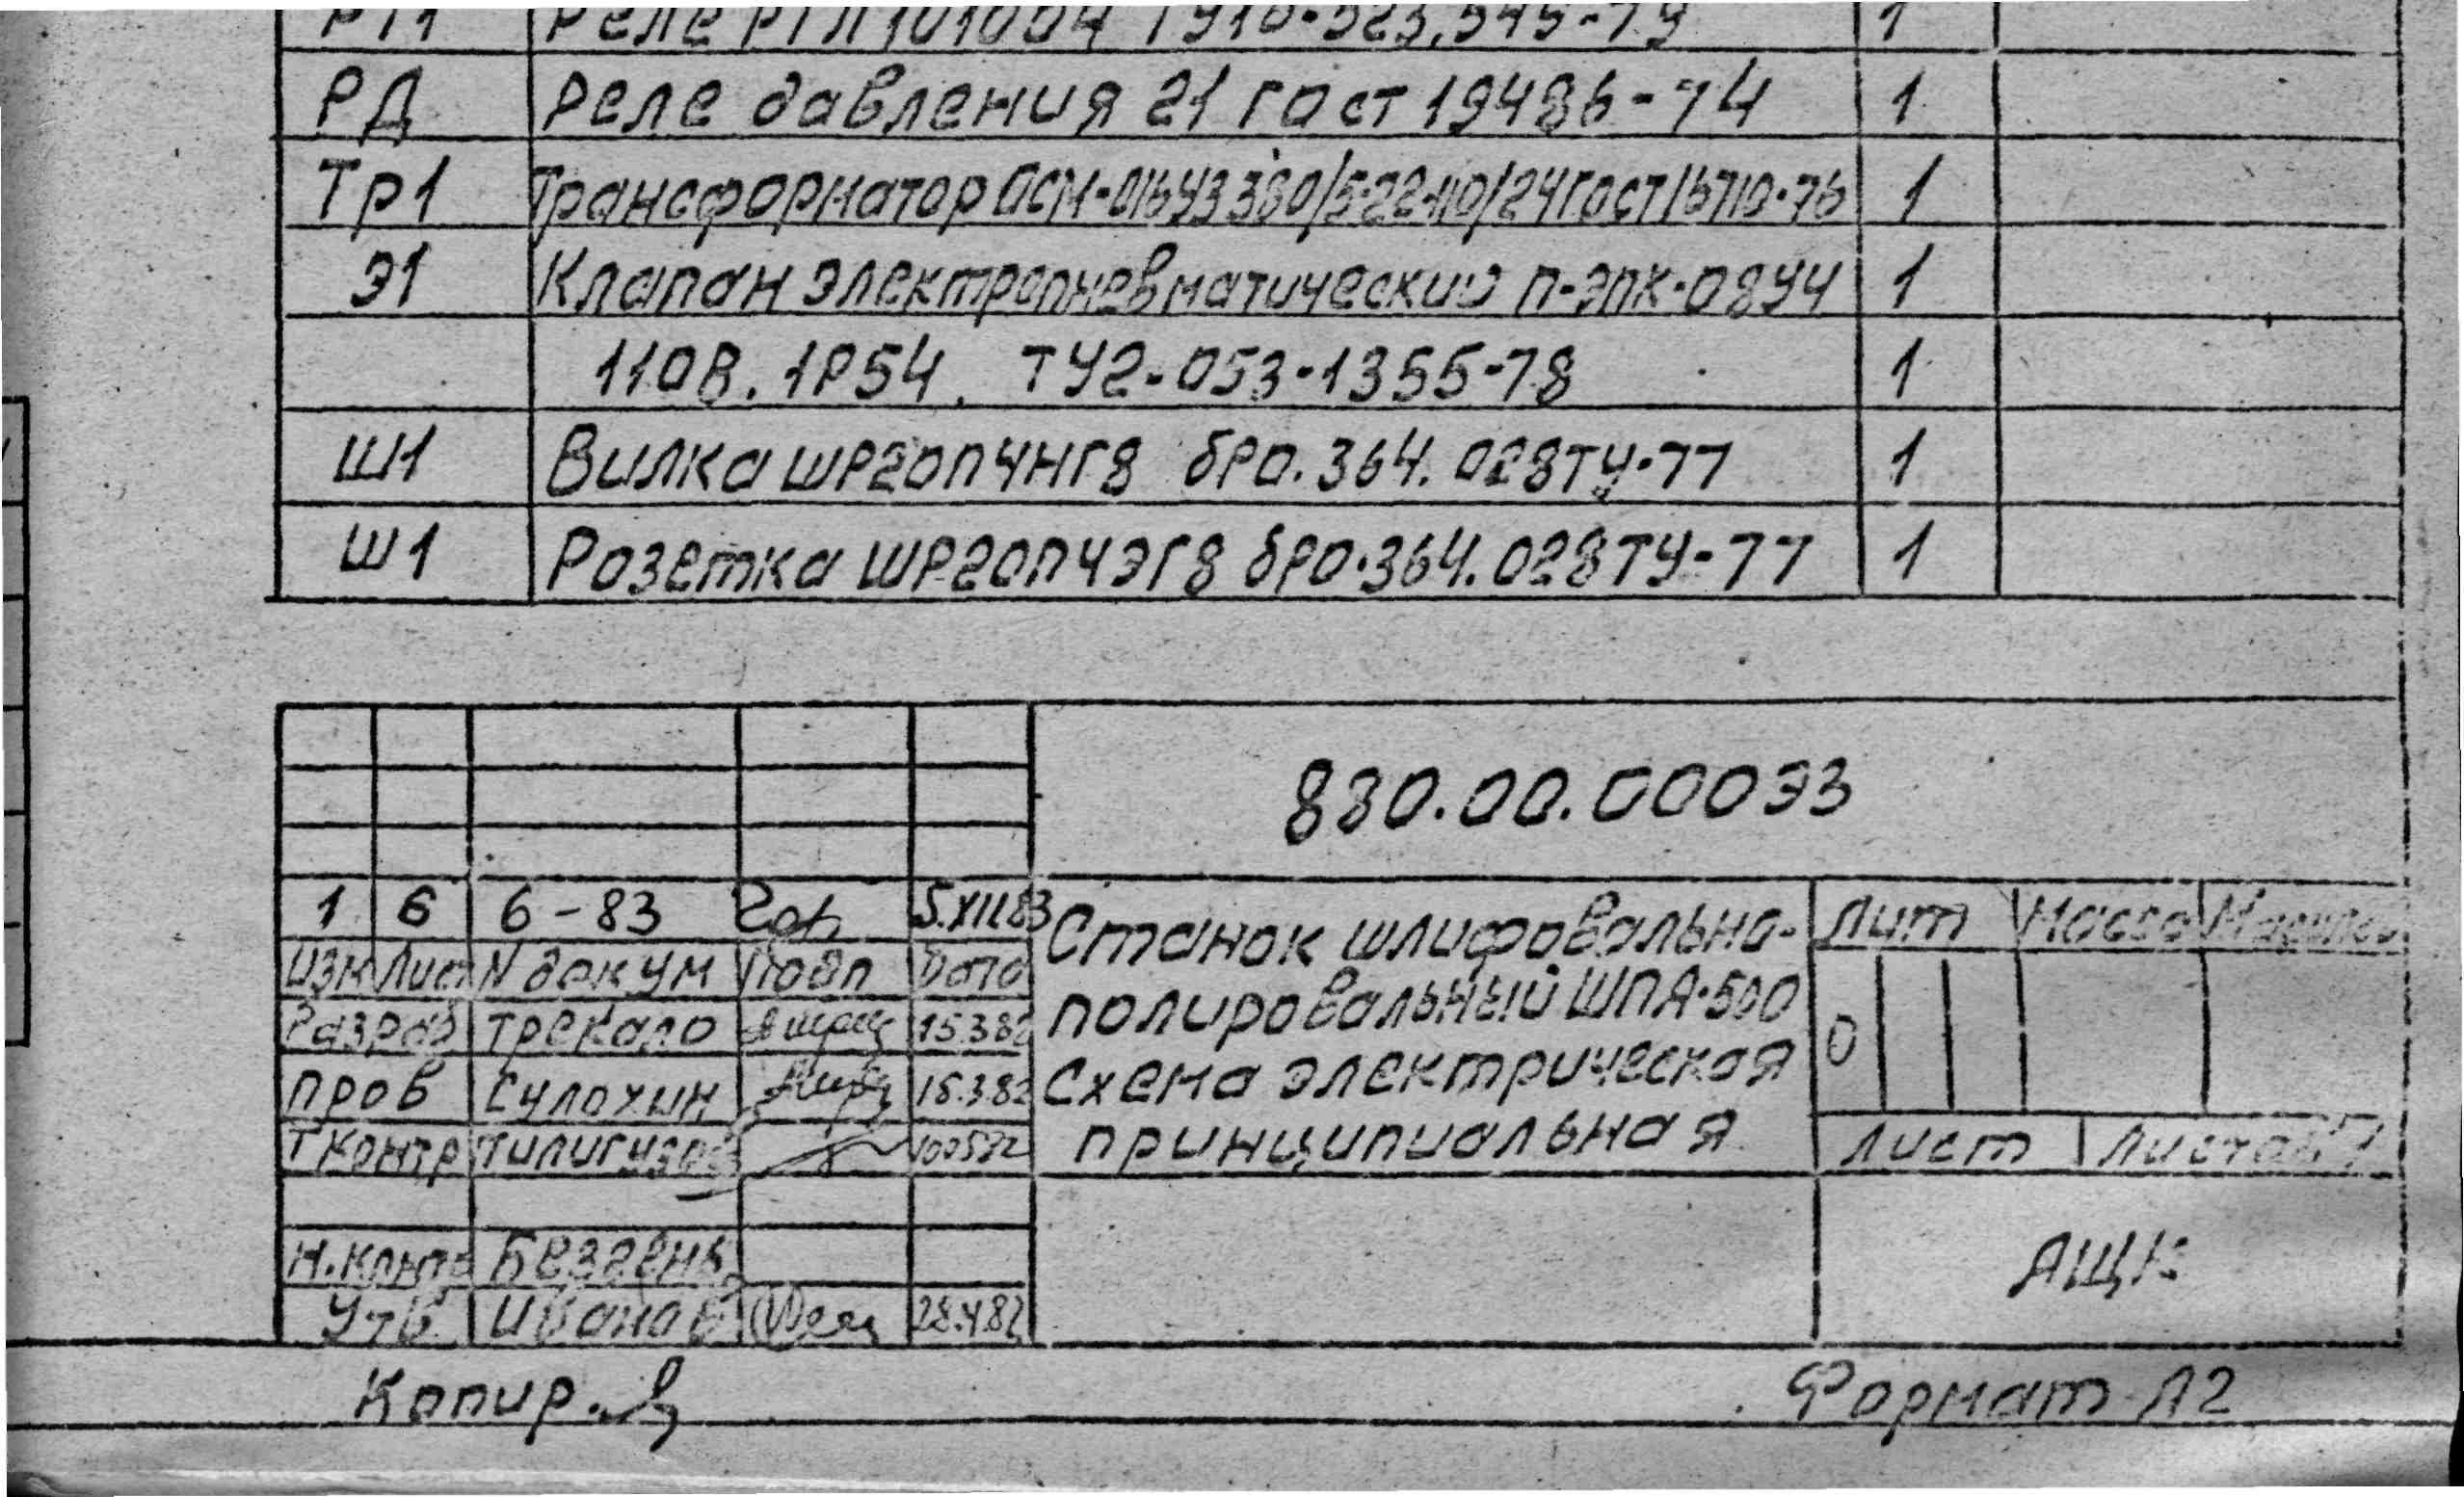 РТ1 Реле РТЛ101004 ТУ16-523.549-79 1
РД Реле давления 21 гост 19486-74 1
Тр1 Трансформатор ОСМ-016У3 380/5-22-110/24 Гост 16710-76 1
Э1 Клапан электропневматический П-ЭПК-08У4 1
110В. 1Р54. ТУ2-053-1355-78 1
Ш1 Вилка ШР20П4НГ8 бРО.364.028ТУ-77 1
Ш1 Розетка ШР20П4ЭГ8 бРО.364.028ТУ-77 1
880.00.000Э3
1 6 6-83 5.XII.83
Изм Лист N докум Подп Дата
Разраб Трекало 15.3.82
Пров Сулохин 18.3.82
Т контр
Н.контр
Утв Иванов 28.4.82
Станок шлифовально-
полировальный ШПА-500
Схема электрическая
принципиальная
Лит Масса Масштаб
О
Лист Листов 7
Копир.
Формат А2